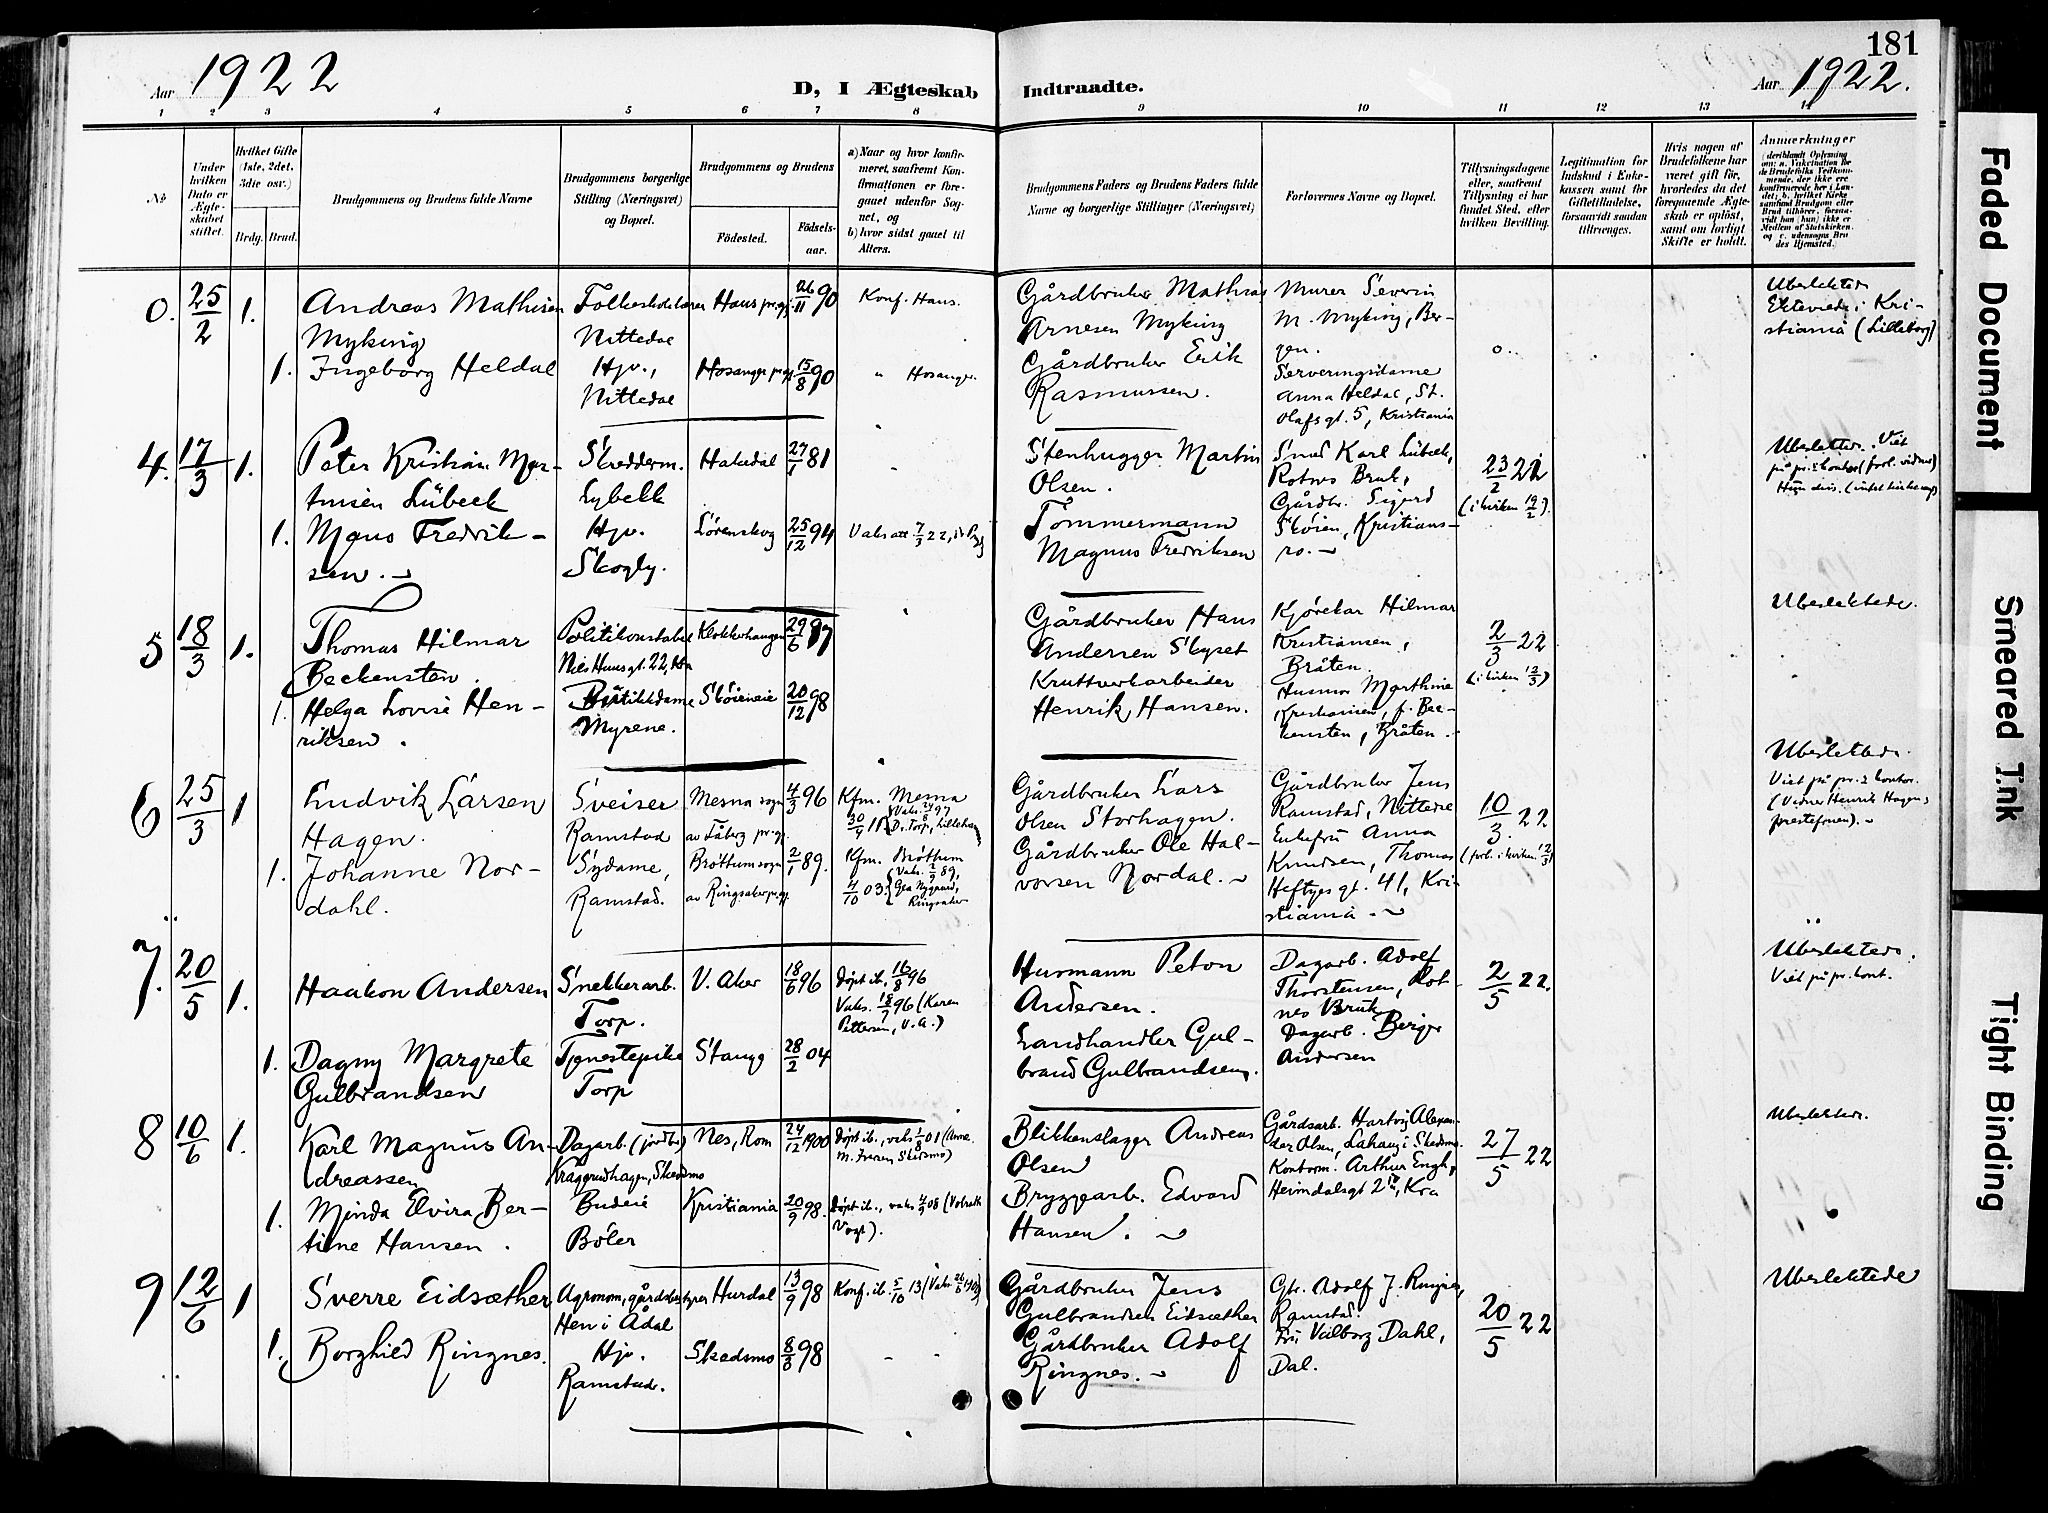 181
Aar 1922
D, I Ægteskab Indtraadte.
Aar 1922.
1 2 3 4 5 6 7 8 9 10 11 12 13 14
No
Under hvilken Dato er Ægteskabet stiftet.
Hvilket Gifte (1ste, 2det, 3die osv.)
Brdg. Brud.
Brudgommens og Brudens fulde Navne
Brudgommens borgerlige Stilling (Næringsvei) og Bopæl.
Brudgommens og Brudens
Fødested. Fødselsaar.
a) Naar og hvor konfirmeret, saafremt Konfirmationen er foregaaet udenfor Sognet, og
b) hvor sidst gaaet til Alters.
Brudgommens Faders og Brudens Faders fulde Navne og borgerlige Stillinger (Næringsvei)
Forlovernes Navne og Bopæl.
Tillysningsdagene eller, saafremt Tillysning ei har fundet Sted, efter hvilken Bevilling.
Legitimation for Indskud i Enkekassen samt for Giftetilladelse, forsaavidt saadan tiltrænges.
Hvis nogen af Brudefolkene har været gift før, hvorledes da det foregaaende Ægteskab er opløst, samt om lovligt Skifte er holdt.
Anmærkninger
0. 25/2 1. Andreas Mathisen Myking
Nittedal
Haus pr.gj. 26/11 90
Konf. Haus.
Gårdbruker Mathias Arnesen Myking
Murer Severin M. Myking, Bergen.
Ubeslektede
Ektevieds i Kristiania (Lilleborg)
1. Ingeborg Heldal
Hjv., Nittedal
Hosanger pr.gj. 15/8 90
" Hosanger.
Gårdbruker Erik Rasmussen.
Serveringsdame Anna Heldal, St. Olafsgt. 5, Kristiania
4. 17/3 1. Peter Kristian Martinsen Lübeck
Skredderm. Lybekk
Hakadal 27/1 81
Stenhugger Martin Olsen.
Smed Karl Lübeck, Rotnes Bruk,
23/2 22
(i kirken 19/2).
1. Fredriksen.
Hjv. Skogly.
Lørenskog 25/12 94
Tømmermann Magnus Fredriksen
Gårdbr. Sigurd Skøien,
5 18/3 1. Thomas Hilmar Beckensten.
Politikonstabel
Klokkerhaugen 29/6 87
Gårdbruker Hans Andersen Skyset
Kjørekar Hilmar Kristiansen, Bråten.
2/3 22
(i kirken 12/3)
Ubeslektede.
1. Helga Lovise Henriksen.
Butikkdame Myrene.
Skøieneie 20/12 98
Kruttverkarbeider Henrik Hansen.
Husmor Marthine Kristiansen, f. Beckensten, Bråten.
6 25/3 1 Ludvik Larsen Hagen.
Sveiser Ramstad
Mesna sogn av Fåberg pr.gj. 4/3 96
Kfm. Mesna 30/9 11
Gårdbruker Lars Olsen Storhagen.
Gårdbruker Jens Ramstad, Nittedal
10/3. 22
Ubeslektede.
Viet på pr.s kontor.
1. Johanne Nordahl.
Sydame, Ramstad.
Brøttum sogn av Ringsaker pr.gj. 2/1 89.
Kfm. Brøttum 4/10 03.
Gårdbruker Ole Halvorsen Nordal.
Enkefru Anna Knudsen, Thomas Heftyes gt. 41, Kristiania.
7. 20/5 1. Haakon Andersen
Snekkerarb. Torp.
V. Aker 18/6 96
Døpt ib. 16/8 96
Vaks. 18/7 96 (Karen Pettersen, V.A.)
Husmann Peton Andersen.
Dagarb. Adolf Thorstensen, Rotnes Bruk
2/5 22.
Ubeslektede.
Viet på pr. kont.
1. Dagny Margrete Gulbrandsen
Tjenestepike Torp
Stange 28/2 04
Landhandler Gulbrand Gulbrandsen.
Dagarb. Birger Andersen
8 10/6 1. Karl Magnus Andreassen
Dagarb. (jordbr.) Kragerudhagen, Skedsmo
Nes, Rom 24/12 1900
Døpt ib., vaks. 1/8 01
Blikkenslager Andreas Olsen
Gårdsarb. Hartvig Alexander Olsen, Lahaug i Skedsmo.
27/5 22
Ubeslektede.
1. Minda Elvira Bertine Hansen.
Budeie Bøler
Kristiania 20/9 98.
Døpt ib.,
Bryggearb. Edvard Hansen.
Kontorm. Arthur Engh, Heimdalsgt 2, Kra
9 12/6 1 Sverre Eidsæther
Agronom, gårdsbestyrer Hen i Ådal
Hurdal 13/9 98
Konf. ib. 5/10 13
Gårdbruker Jens Gulbrandsen Eidsæther
Gbr. Adolf J. Ringnes, Ramstad.
20/5 22
Ubeslektede
1. Borghild Ringnes.
Hjv. Ramstad.
Skedsmo 8/3 98
Gårdbruker Adolf Ringnes.
Fru Valborg Dahl, Dal.
Faded Document
Smeared Ink
Tight Binding